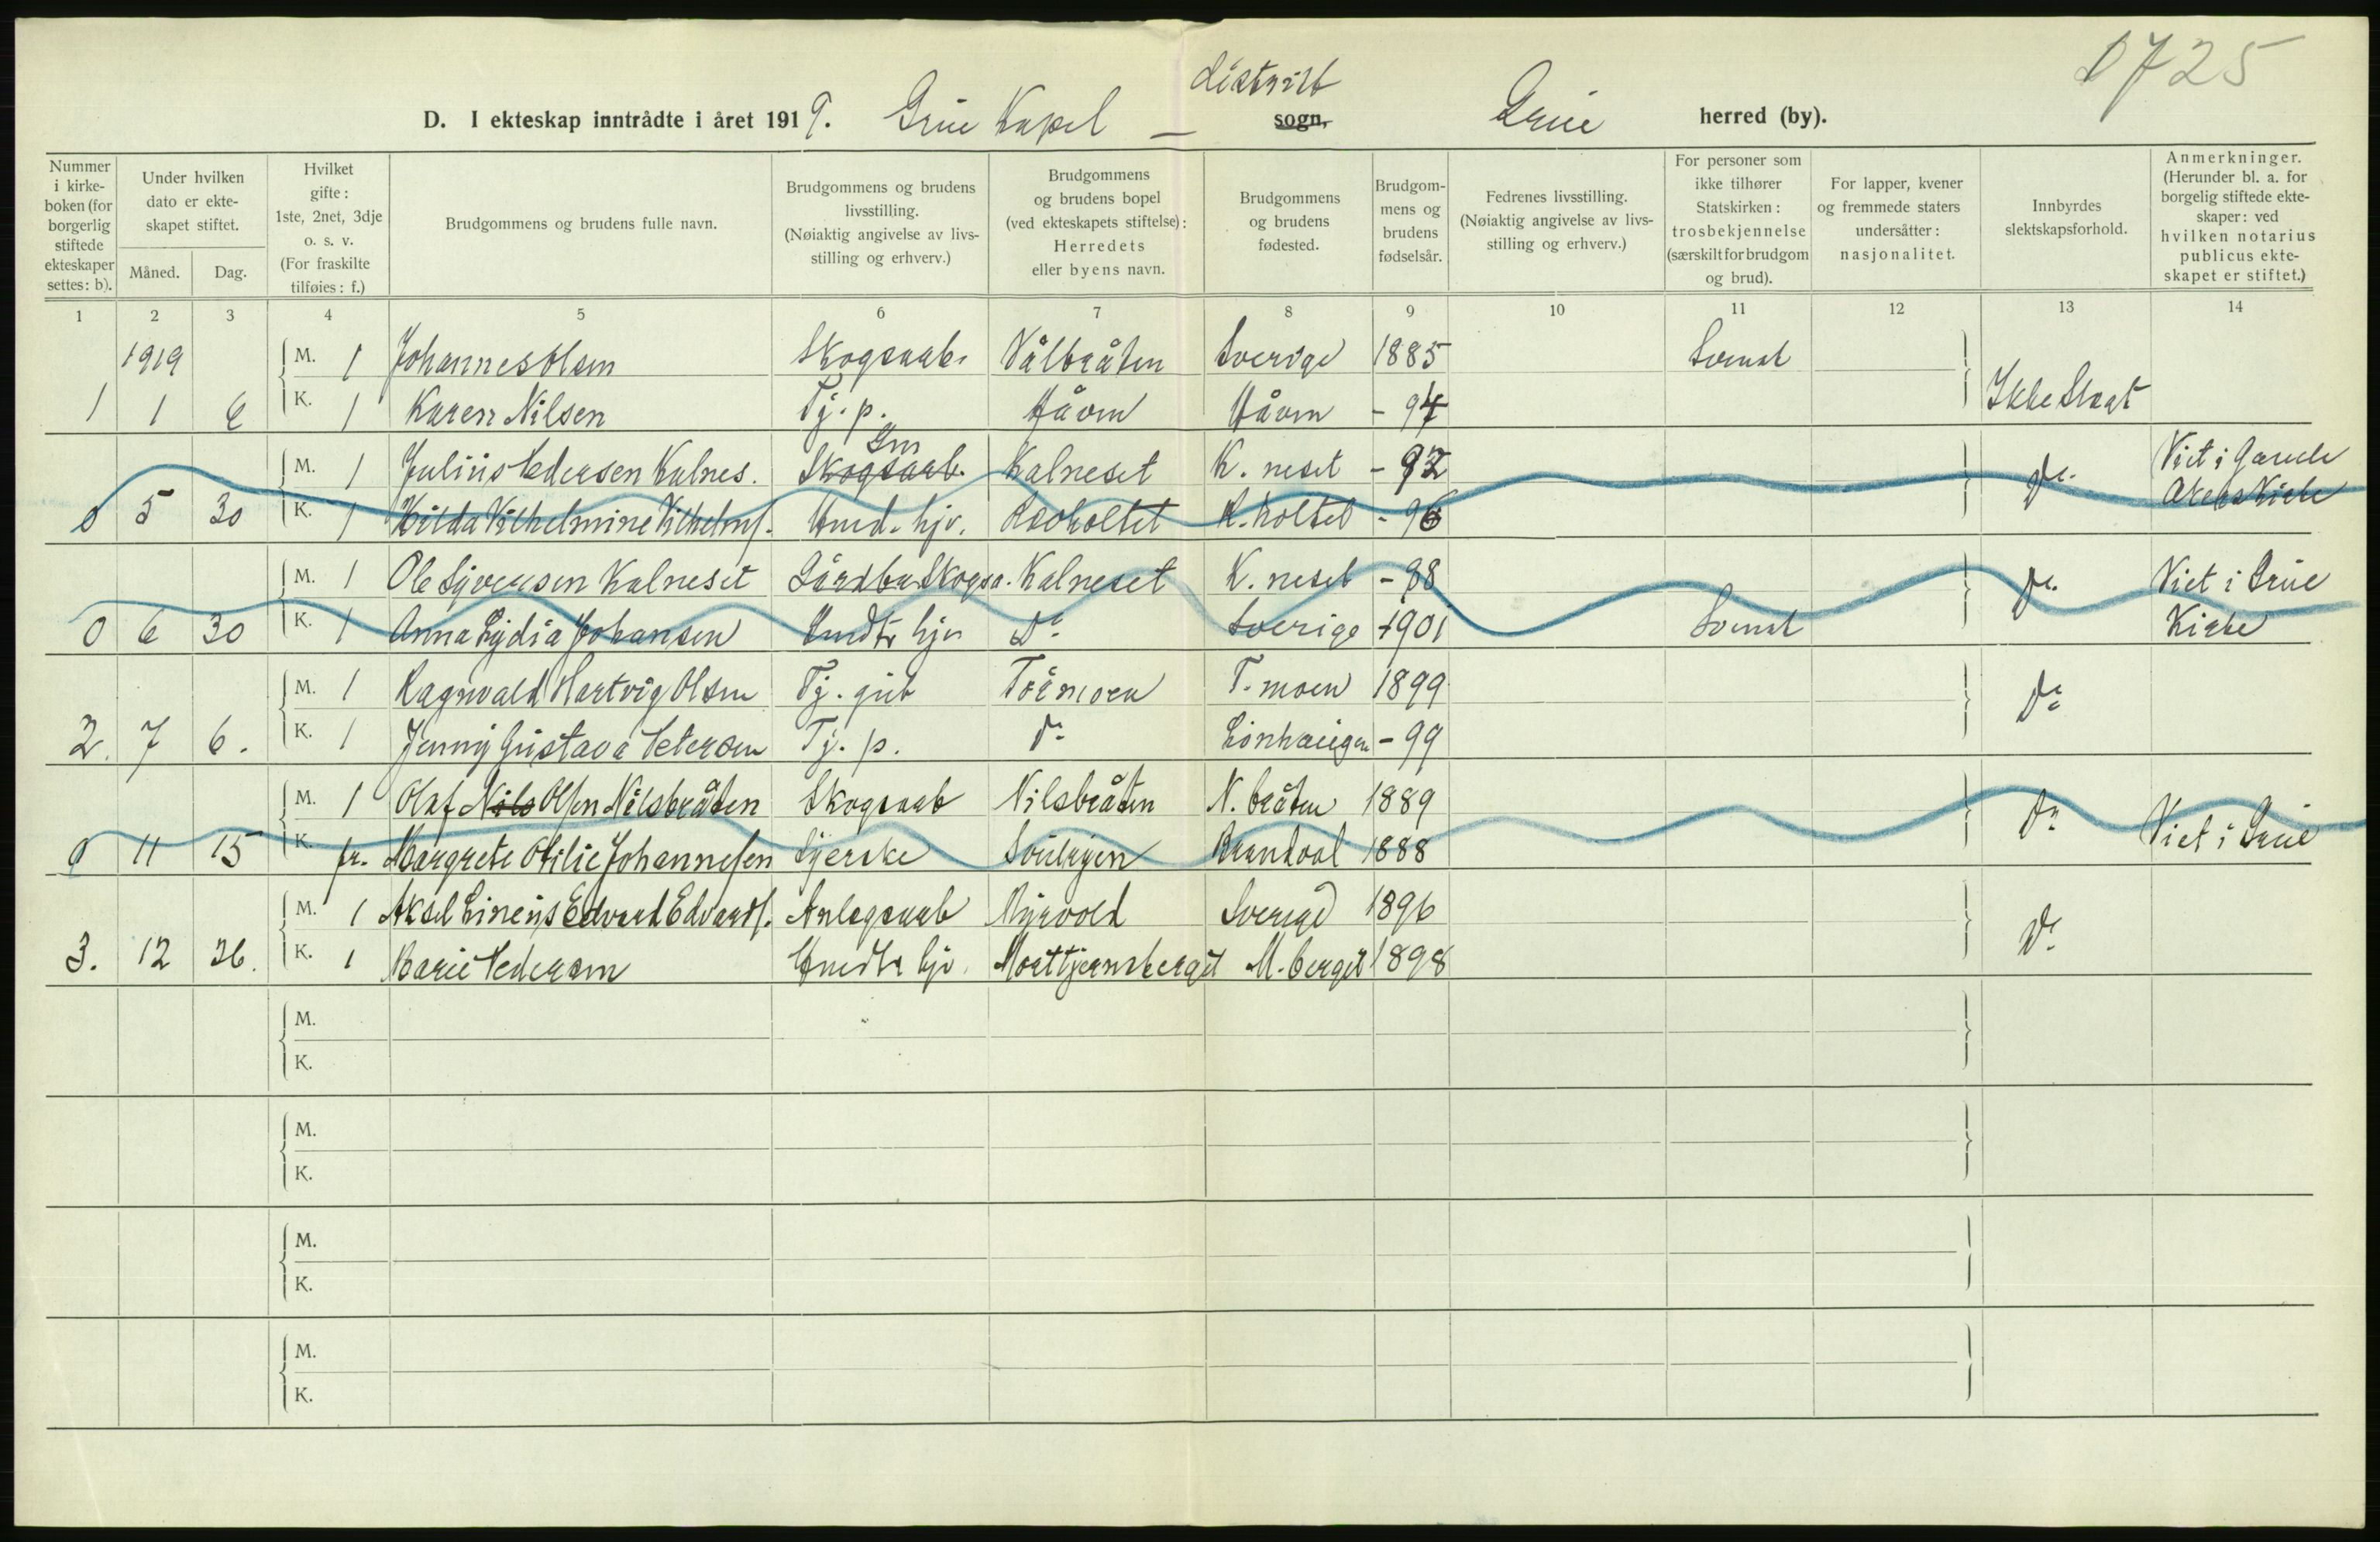 0725
distrikt
D. I ekteskap inntrådte i året 1919. Grue Kapel — sogn, Grue herred (by).
Nummer i kirkeboken (for borgerlig stiftede ekteskaper settes: b).
Under hvilken dato er ekteskapet stiftet.
Måned. Dag.
Hvilket gifte: 1ste, 2net, 3dje o. s. v. (For fraskilte tilføies: f.)
Brudgommens og brudens fulle navn.
Brudgommens og brudens livsstilling. (Nøiaktig angivelse av livsstilling og erhverv.)
Brudgommens og brudens bopel (ved ekteskapets stiftelse): Herredets eller byens navn.
Brudgommens og brudens fødested.
Brudgommens og brudens fødselsår.
Fedrenes livsstilling. (Nøiaktig angivelse av livsstilling og erhverv.)
For personer som ikke tilhører Statskirken: trosbekjennelse (særskilt for brudgom og brud).
For lapper, kvener og fremmede staters undersåtter: nasjonalitet.
Innbyrdes slektskapsforhold.
Anmerkninger. (Herunder bl. a. for borgelig stiftede ekteskaper: ved hvilken notarius publicus ekteskapet er stiftet.)
1 2 3 4 5 6 7 8 9 10 11 12 13 14
1919 M. 1 Johannes Olsen Skogsarb. Vålbråten Sverige 1885 Svensk
1 1 6 K. 1 Karen Nilsen Tj. p. Håven Håven - 94 Ikke Slegt
Gm
M. 1 Julius Pedersen Kalnes. Skogsarb. Kalneset K. neset - 92 Do. Viet i Gamle
0 5 30 K. 1 Hilda Vilhelmine Vilhelmsf. Husd. hjv. Rooholtet R. holtet - 96 Akers Kirke
M. 1 Ole Syversen Kalneset Gårdbr Skogsa. Kalneset K. neset - 88 Do. Viet i Grue
0 6 30 K. 1 Anna Lydia Johansen Husdtr hjv Do Sverige 1901 Svensk Kirke
M. 1 Ragnvald Hartvig Olsen Tj. gut Törmoen T. moen 1899 Do
2. 7 6. K. 1 Jenny Gustava Petersen Tj. p. Do Lönhaugen - 99
M. 1 Olaf Nils Olsen Nilsbråten Skogsarb Nilsbråten N. bråten 1889 Do Viet i Grue
0 11 15 K. fr. Margrete Otilie Johannesen Syerske Brandval 1888
M. 1 Aksel Lineus Edvard Edvardf. Anlegsarb Myrvold Sverige 1896 Do
3. 12 26. K. 1 Marie Pedersen Husdtr hjv. Morttjernsberget M. berget 1898
M.
K.
M.
K.
M.
K.
M.
K.